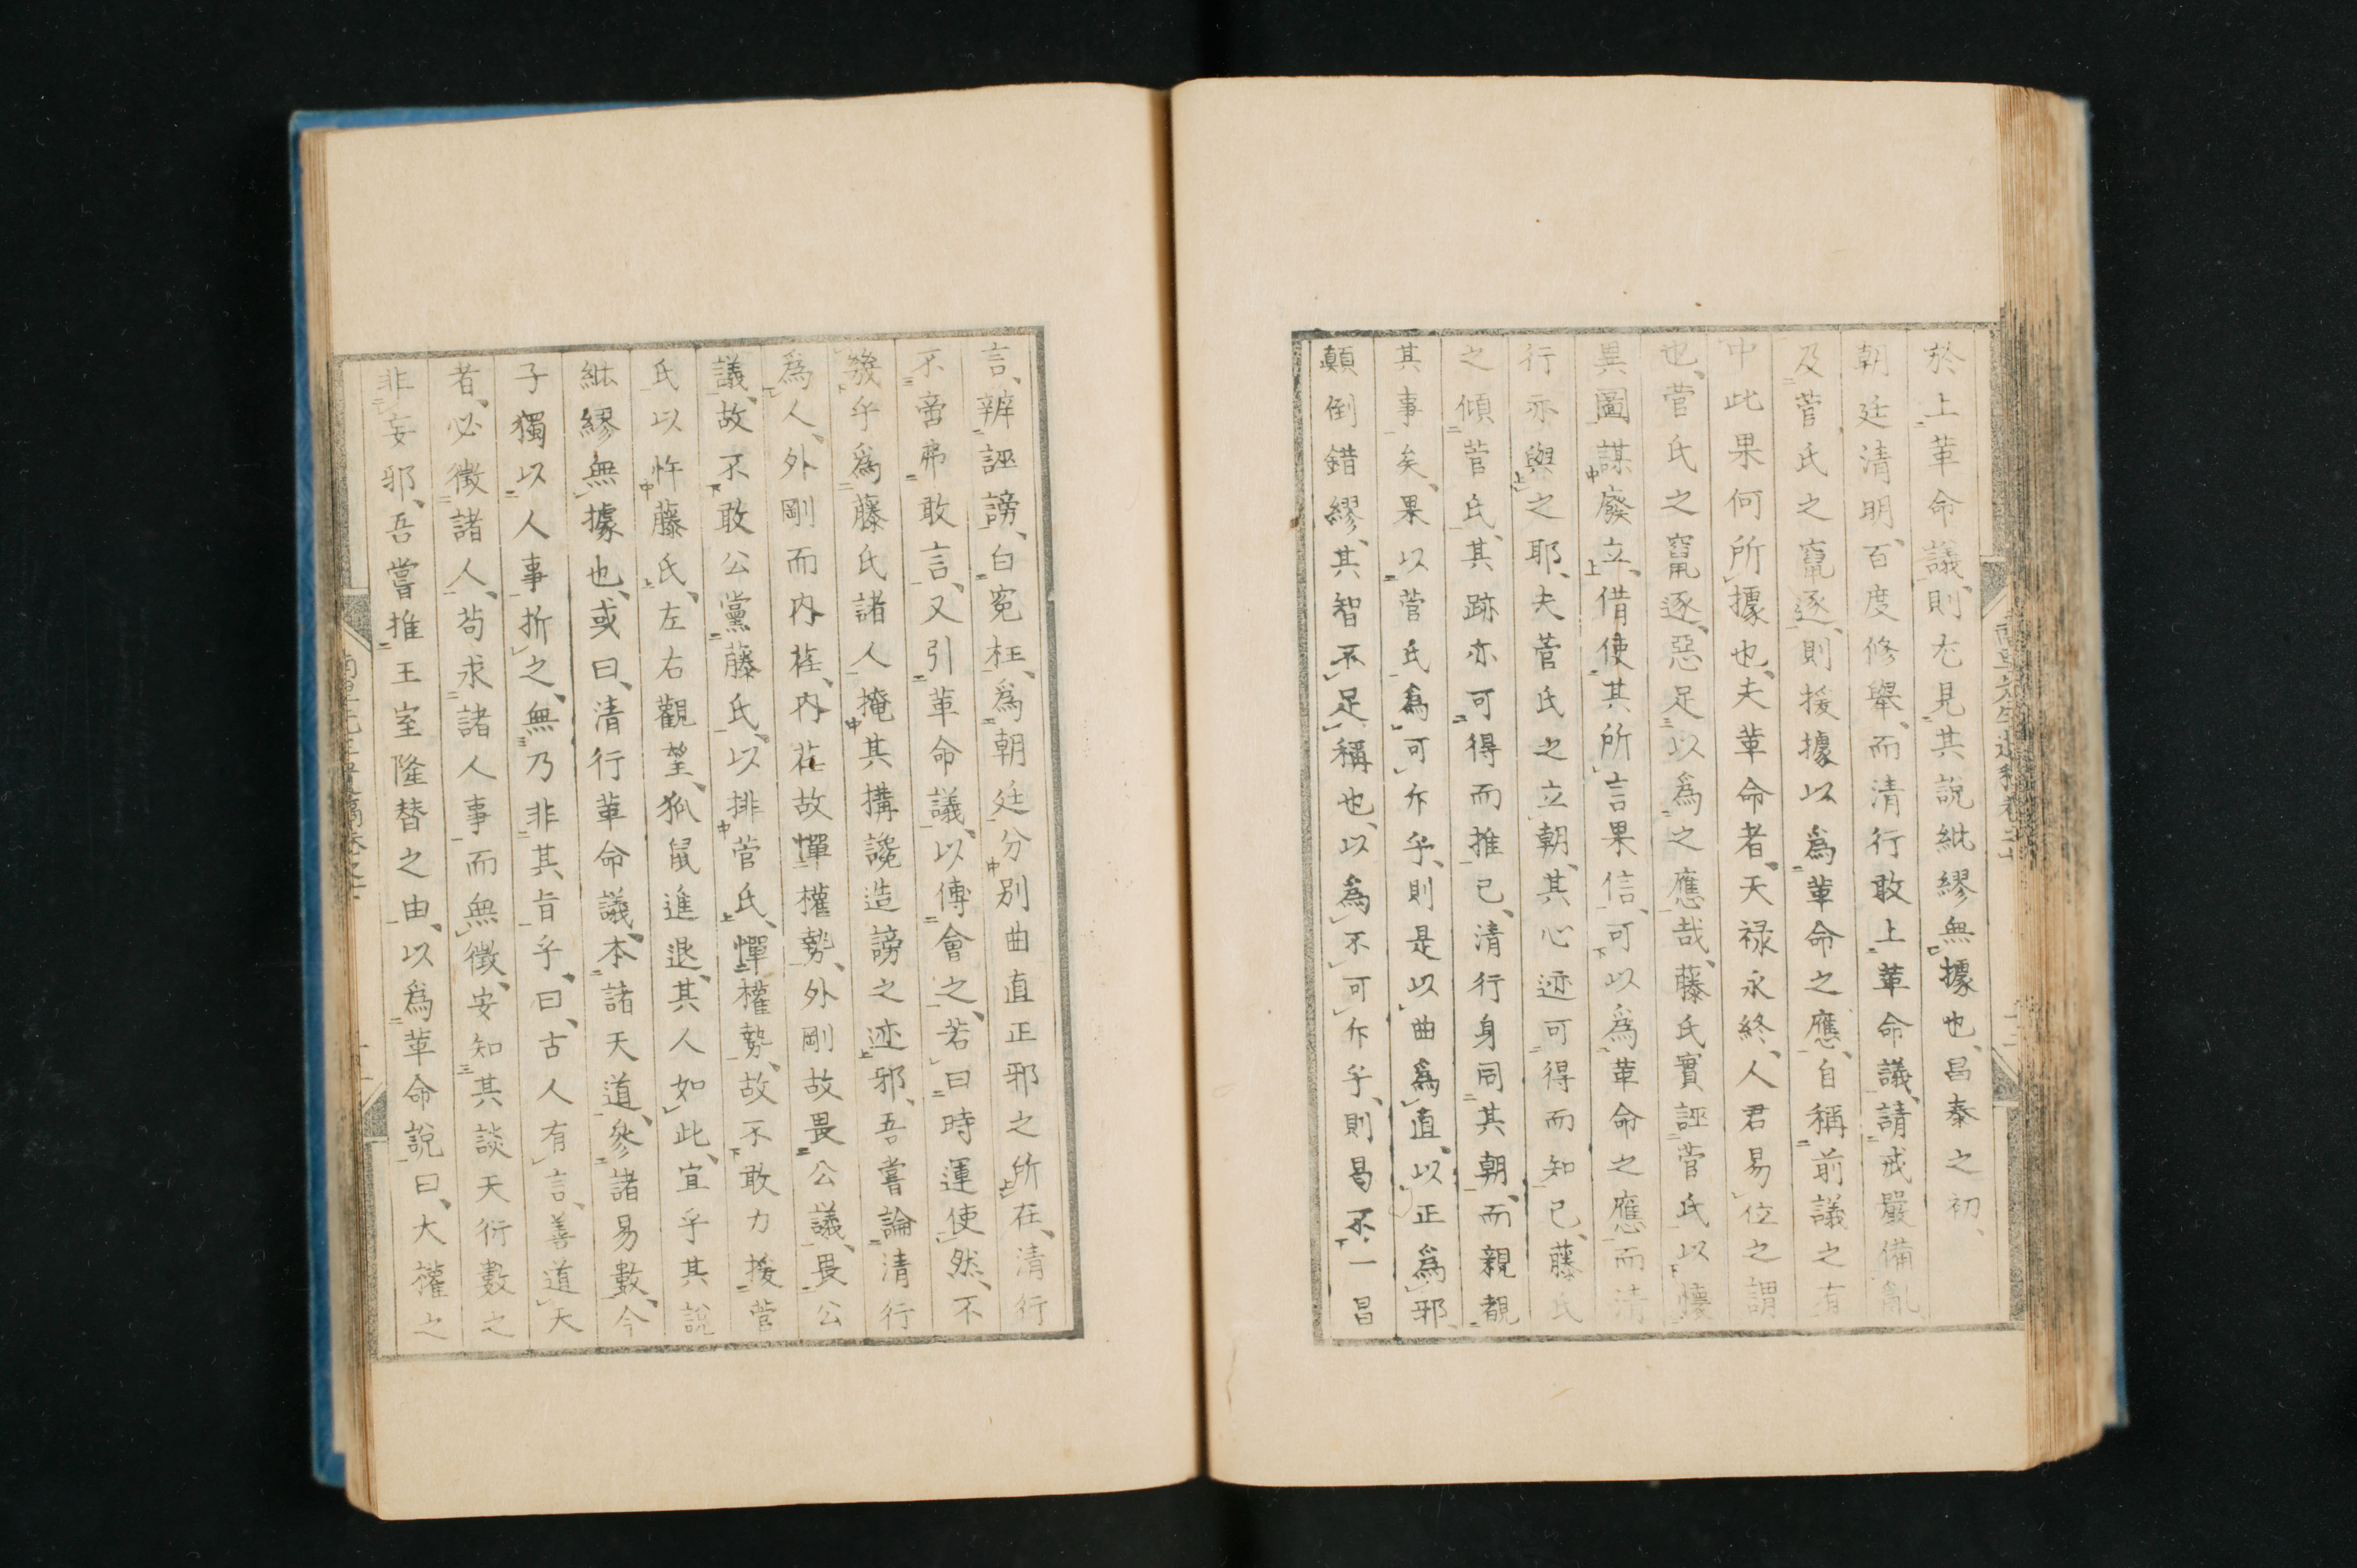 於上革命議、則尤見其說紕繆無據也、昌泰之初、
朝廷清明、百度修舉、而清行敢上革命議、請戒嚴備亂
及菅氏之竄逐、則援據以爲革命之應、自稱前議之有
中此果何所據也、夫革命者、天禄永終、人君易位之謂
也、菅氏之竄逐、惡足以爲之應哉、藤氏實誣菅氏以懷
異圖謀廢立、借使其所言果信、可以爲革命之應、而清
行亦與之耶、夫菅氏之立朝、其心迹可得而知已、藤氏
之傾菅氏、其跡亦可得而推已、清行身同其朝、而親覩
其事矣、果以菅氏爲可乍乎、則是以曲爲直、以正爲邪、
顛倒錯繆、其智不足稱也、以爲不可乍乎、則曷不一昌
言、辨誣謗、白寃枉、爲朝廷分別曲直正邪之所在、清行
不啻弗敢言、又引革命議、以傅會之、若曰時運使然、不
幾乎爲藤氏諸人掩其搆讒造謗之迹邪、吾嘗論清行
爲人、外剛而内荏、内荏故憚權勢、外剛故畏公議、畏公
議、故不敢公黨藤氏、以排菅氏、憚權勢、故不敢力援菅
氏以忤藤氏、左右觀望、狐鼠進退、其人如此、宜乎其說
紕繆無據也、或曰、清行革命議、本諸天道、參諸易數、今
子獨以人事折之、無乃非其旨乎、曰、古人有言、善道天
者、必徵諸人、苟求諸人事而無徵、安知其談天衍數之
非妄邪、吾嘗推王室隆替之由、以爲革命說曰、大權之